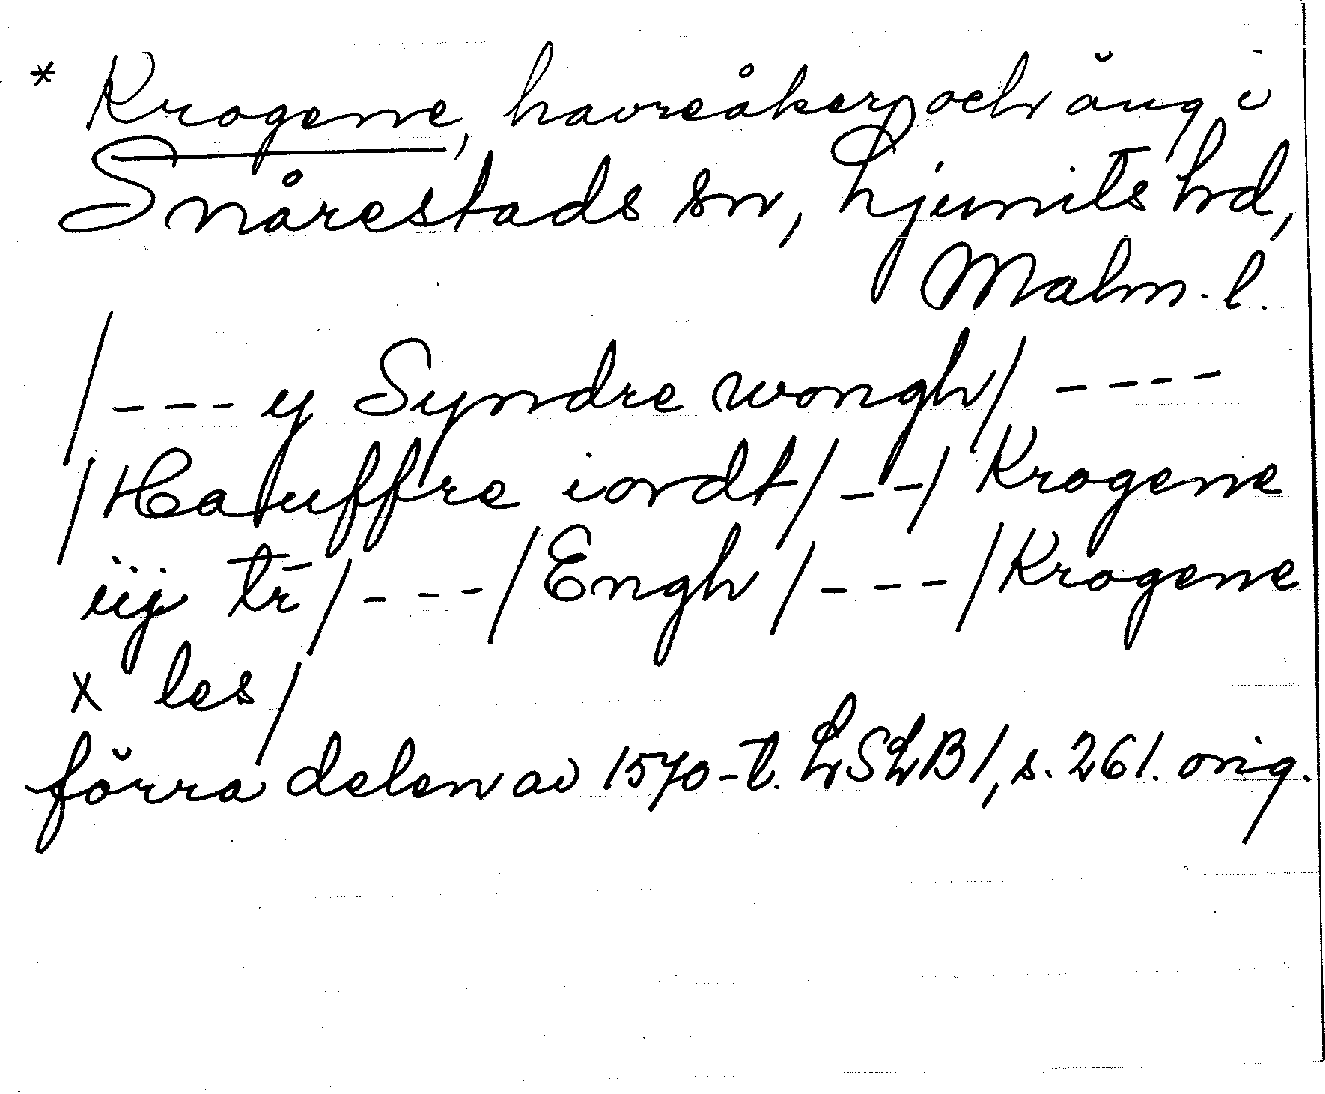 * Krogene, havreåker och äng i
Snårestads sn, Ljunits hd,
Malm. l.
/---y Syndre wongh/ ----
/Hauffre iordt/--/Krogene
iij tr/---/Engh/---/Krogene
x les/
förra delen av 1570-t. LSLB1, s. 261. orig.